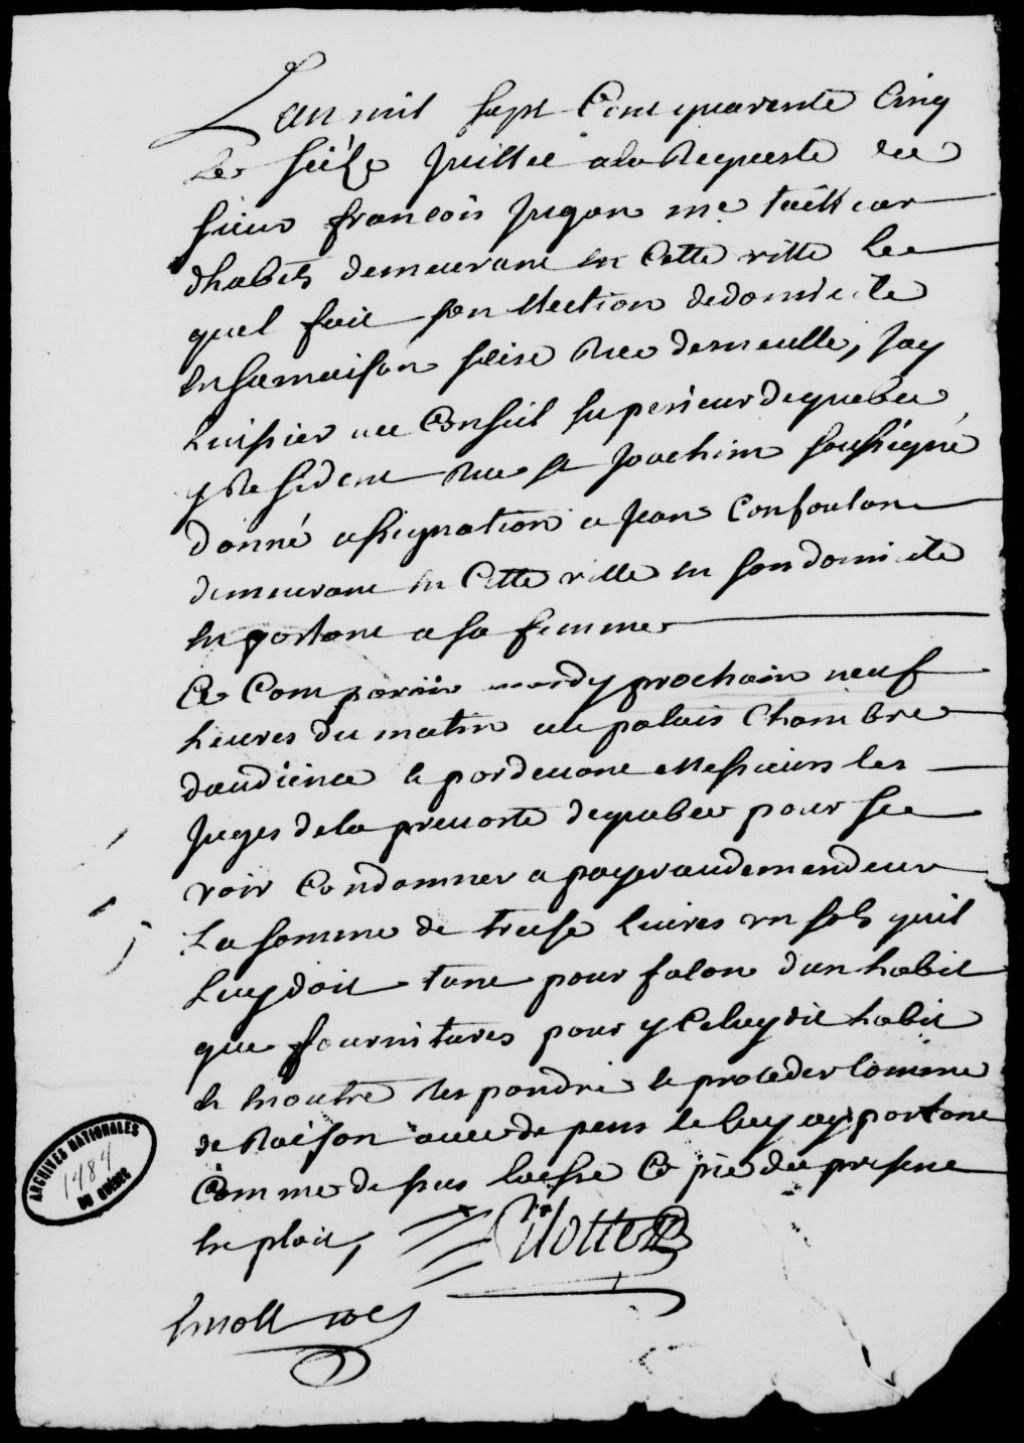 Lan mil sept Cent quarente Cinq
Le seize Juillet a la Requeste du
sieur francois Jugon me tailleur
dhabits demeurant en Cette ville le
quel fait son Election de domicile
en sa maison seise Rue desmeulle, Jay
huissier au Conseil superieur de quebec
y Residant Rue st Joachim soussigné
donné assignation a Jean Confoulan
demeurant en Cette ville en son domicile
en parlant a sa femme
a Comparoir mardy prochain neuf
heures du matin au palais Chambre
daudience & pardevant Messieurs les
Juges de la prevosté de quebec pour se
voir Condamner a payer au demendeur
La somme de treise livres un sols quil
Luy doit tant pour falon dun habit
que fournitures pour y Celuy dit habit
& en outre Respondre & proceder Comme
de Raison avec depens & luy ay parlant
Comme dessus laissé Copie du present
Exploit,
Vallette
ARCHIVES NATIONALES
1484
DU QUÉBEC